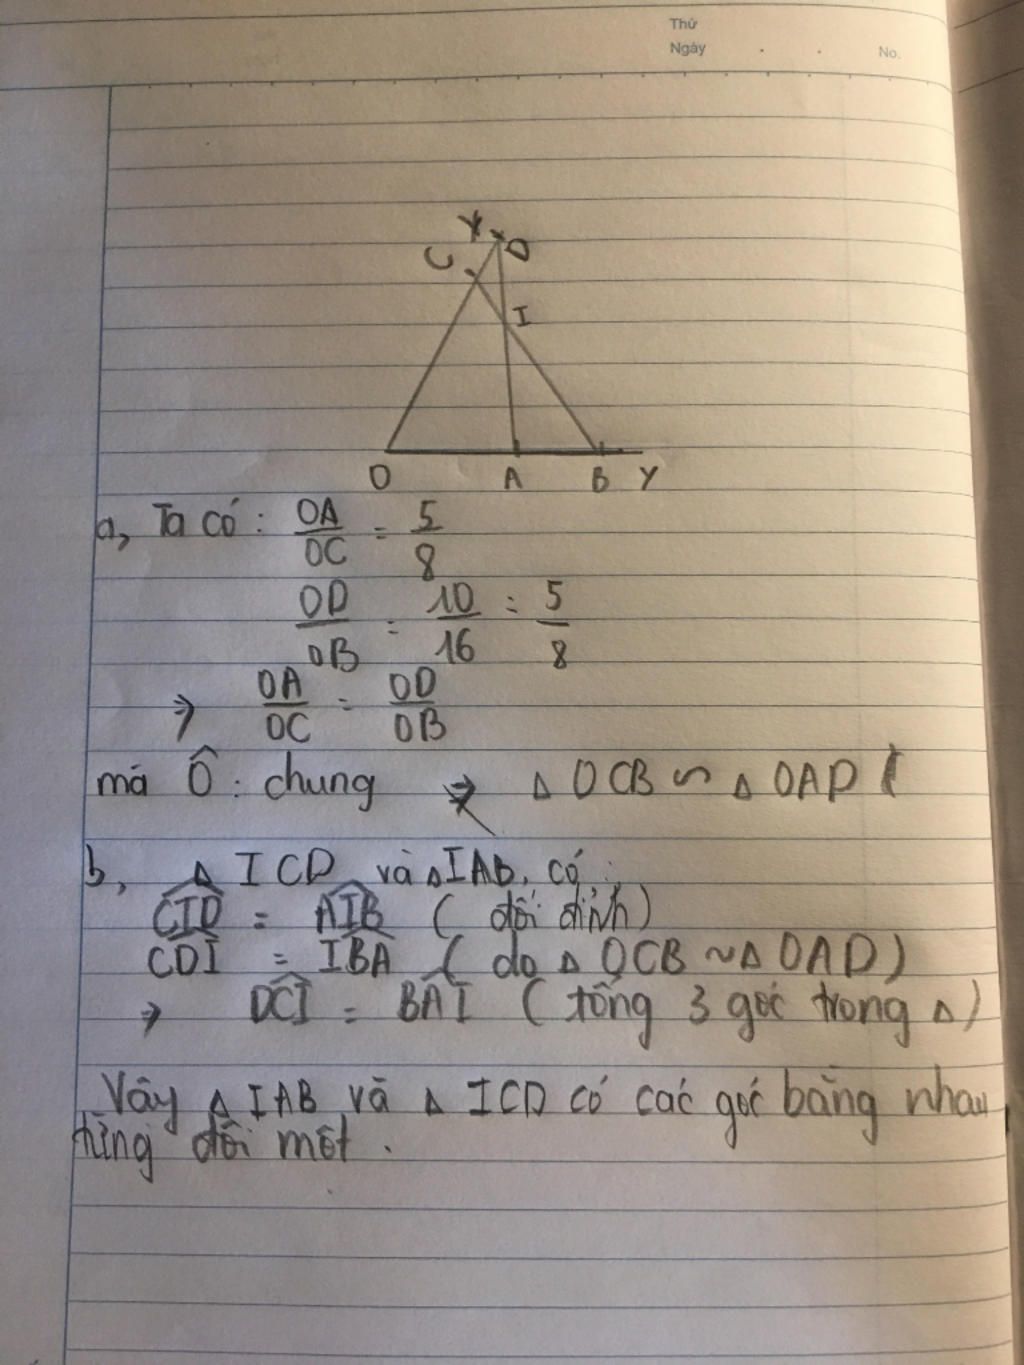 Thứ
Ngày . . No.
X D
C
I
O A B Y
a, Ta có: OA/OC = 5/8
OD/OB = 10/16 = 5/8
⇒ OA/OC = OD/OB
mà Ô: chung ⇒ Δ OCB ∽ Δ OAD (
b, Δ ICD và Δ IAB, có:
CID = AIB (đối đỉnh)
CDI = IBA (do Δ OCB ~ Δ OAD)
⇒ DCI = BAI (tổng 3 góc trong Δ)
Vậy Δ IAB và Δ ICD có các góc bằng nhau
từng đôi một.